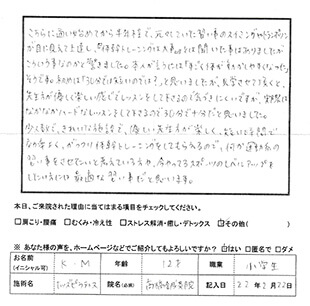 こちらに通い始めてから半年程で、元々していた習い事のスイミングや
が目に見えて上達し、体幹トレーニングは大事。とは聞いた事はありましたが
こういう事なのかと驚きました。本人が言うには「すごく体がうごかしやすくなった」
そうです。始めは「30分では短いのでは？」と思いましたが、見学させて頂くと、
先生方が優しく楽しい感じでレッスンをして下さるので気づきにくいですが、実際は
なかなかハードなレッスンをして下さるので30分で十分だと思いました。
少人数で、きれいな施設で、優しい先生方が楽しく、短い時間で
トレーニングをして下さるので、何か運動系の
習い事をさせたいと考えている方や、今やってるスポーツのレベルアップを
したい方には最適な習い事だと思います。
本日、ご来院された理由に当てはまる項目をチェックしてください。
□肩こり・腰痛 □むくみ・冷え性 □ストレス解消・癒し・デトックス □その他( )
※ あなた様の声を、ホームページなどでご紹介してもよろしいですか？ □はい □匿名で □ダメ
お名前(イニシャル可) K・M 年齢 12才 職業 小学生
施術名 キッズピラティス 院名(必須) 22年 月22日